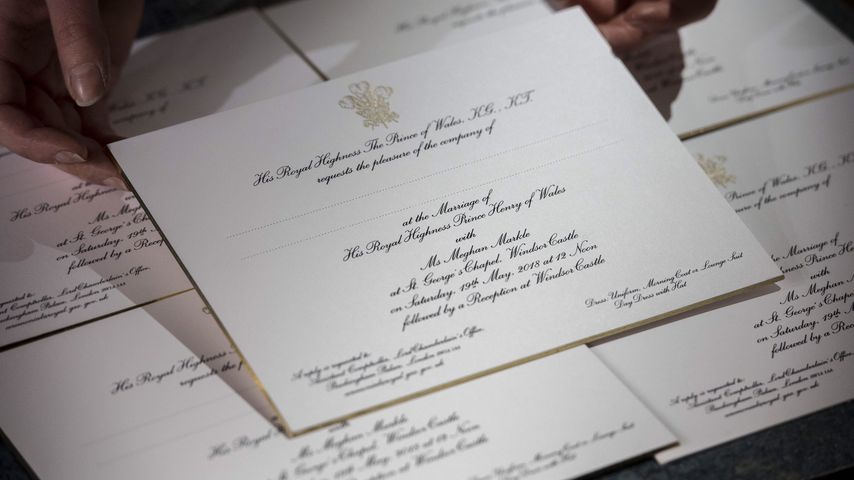 His Royal Highness The Prince of Wales, K.G., K.T.
requests the pleasure of the company of
at the Marriage of
His Royal Highness Prince Henry of Wales
with
Ms Meghan Markle
at St. George's Chapel, Windsor Castle
on Saturday, 19th May, 2018 at 12 Noon
followed by a Reception at Windsor Castle
Dress: Uniform, Morning Coat or Lounge Suit
Day Dress with Hat
A reply is requested to:
Assistant Comptroller, Lord Chamberlain's Office,
Buckingham Palace, London SW1A 1AA
K.G., K.T.
company of
Dress: Uniform, Morning Coat or Lounge Suit
Day Dress with Hat
His Royal Highness
requests the
Ms Meghan
at St. George's Chapel
on Saturday, 19th May
followed by a Reception
A reply is requested to:
Assistant Comptroller, Lord Chamberlain's Office,
Buckingham Palace, London SW1A 1AA
of Wales, K.G., K.T.
company of
at the Marriage of
His Royal Highness Prince
with
Ms Meghan
at St. George's
on Saturday, 19th
followed by a
A reply is requested to:
Assistant Comptroller, Lord Chamberlain's Office,
Buckingham Palace, London SW1A 1AA
His Royal Highness
requests the
His Royal
Ms Meghan Markle
at St. George's Chapel, Windsor Castle
on Saturday, 19th May, 2018 at 12 Noon
followed by a Reception at Windsor Castle
Dress: Uniform, Morning Coat or Lounge Suit
Day Dress with Hat